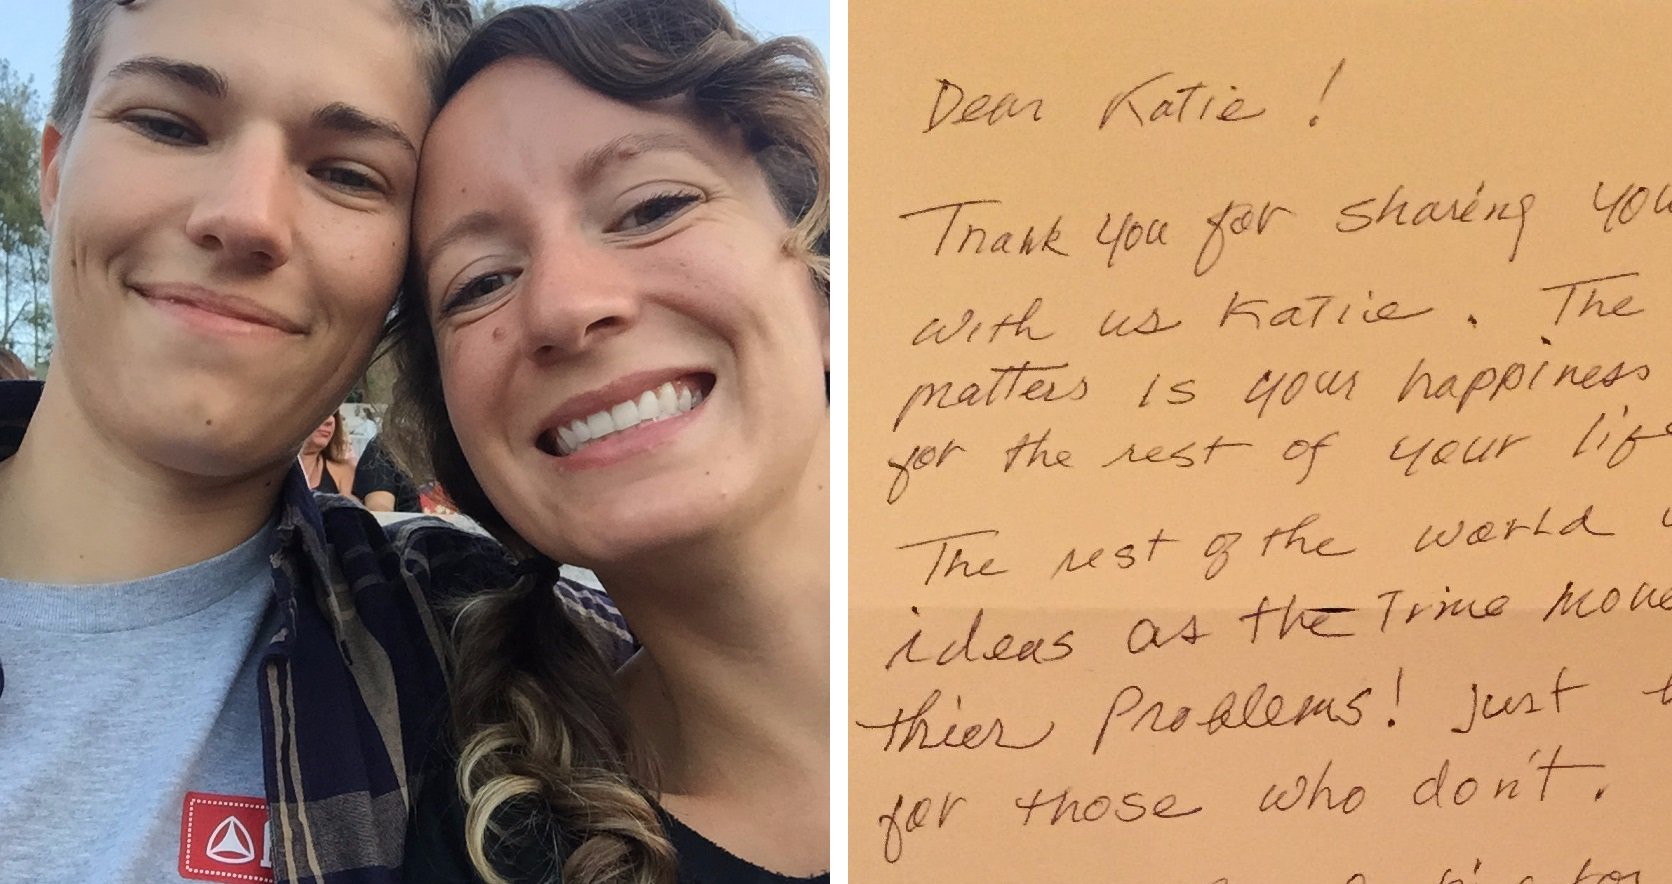 Dear Katie!
Thank you for sharing you
with us Katie. The
matters is your happiness
for the rest of your life
The rest of the world
ideas as the Time move
thier Problems! just
for those who don't.